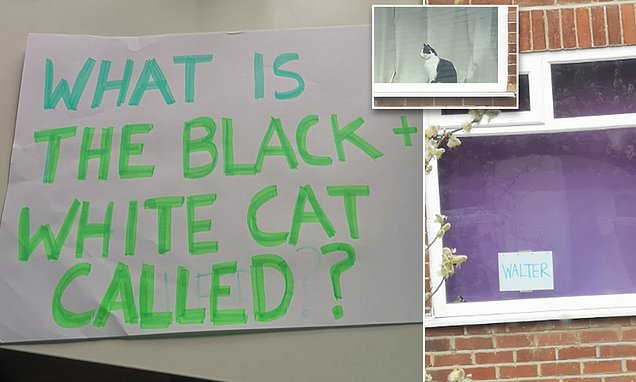 WHAT IS
THE BLACK +
WHITE CAT
CALLED?
WALTER